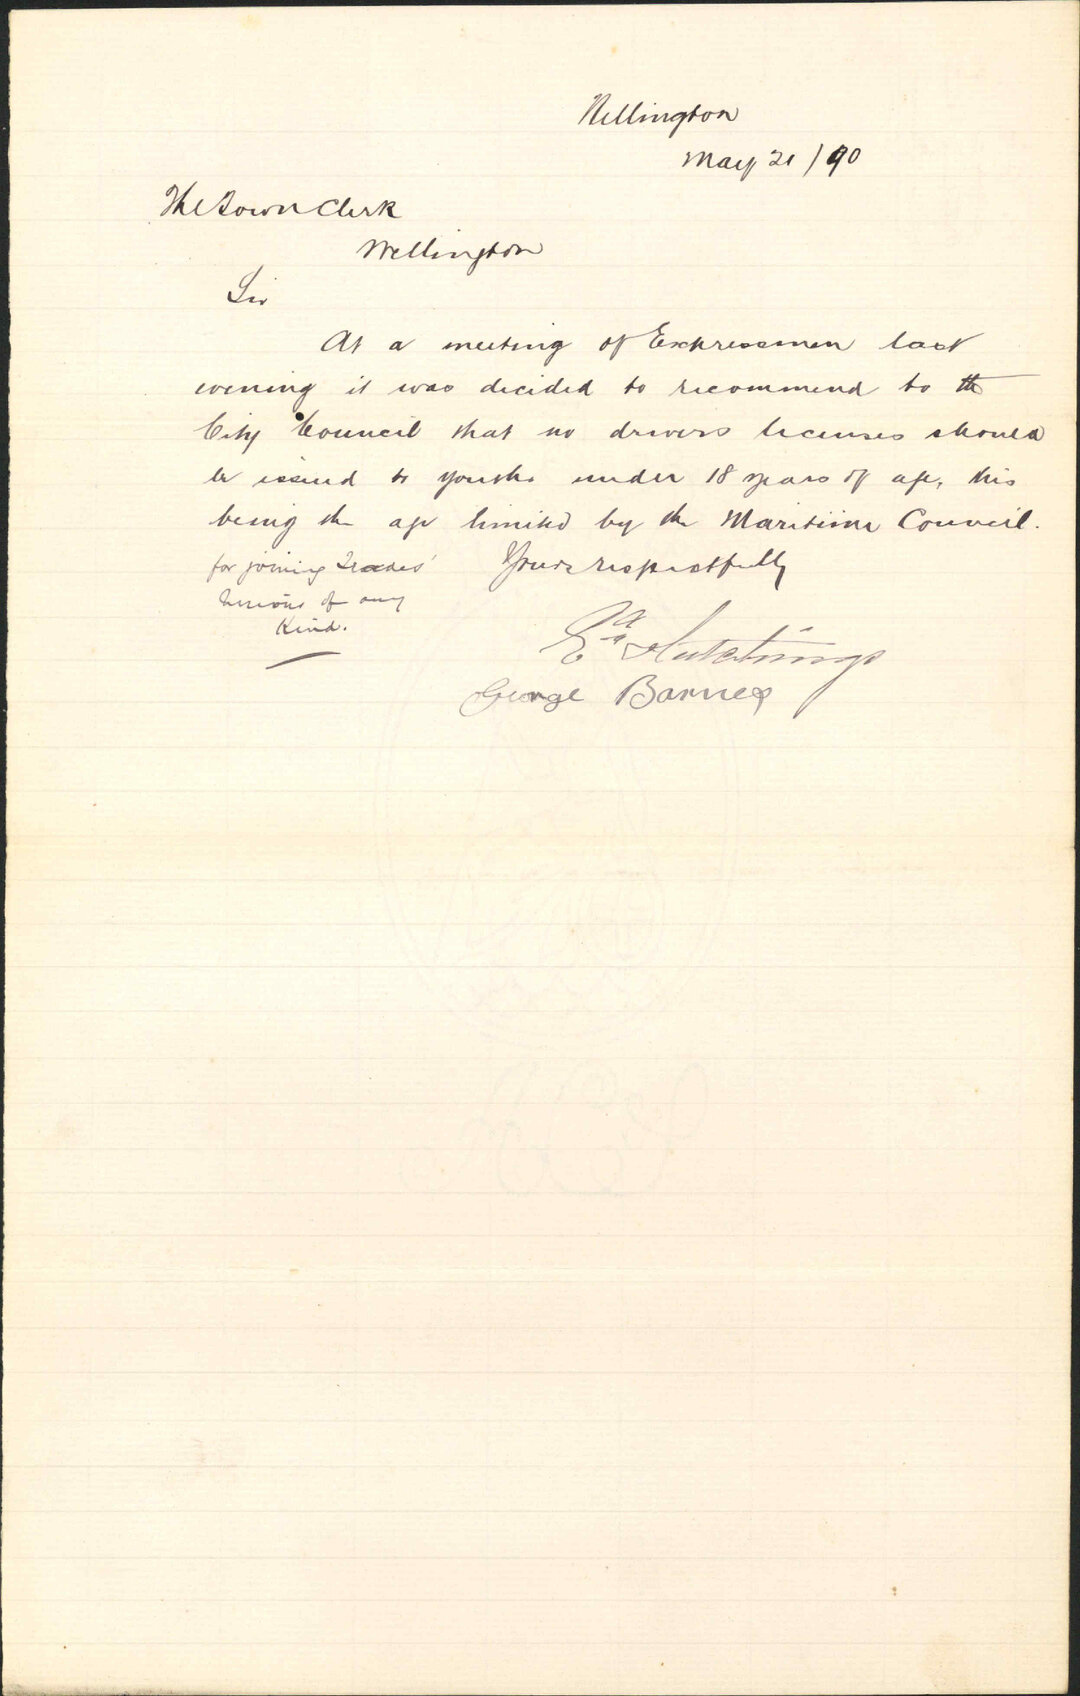 Wellington
May 21 / 90
The Town Clerk
Wellington
Sir
At a meeting of Expressmen last
evening it was decided to recommend to the
City Council that no drivers licenses should
be issued to youths under 18 years of age, this
being the age limited by the Maritime Council.
for joining Trades'
Unions of any
Kind.
Yours respectfully
Hutchings
George Barnes